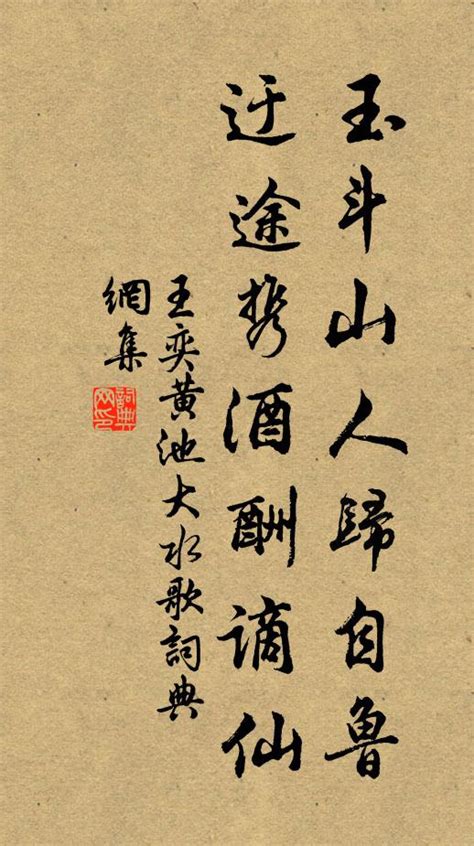 玉斗山人歸自魯
迂途携酒酬謫仙
王奕黄池大水歌詞典
網集
詞典網印